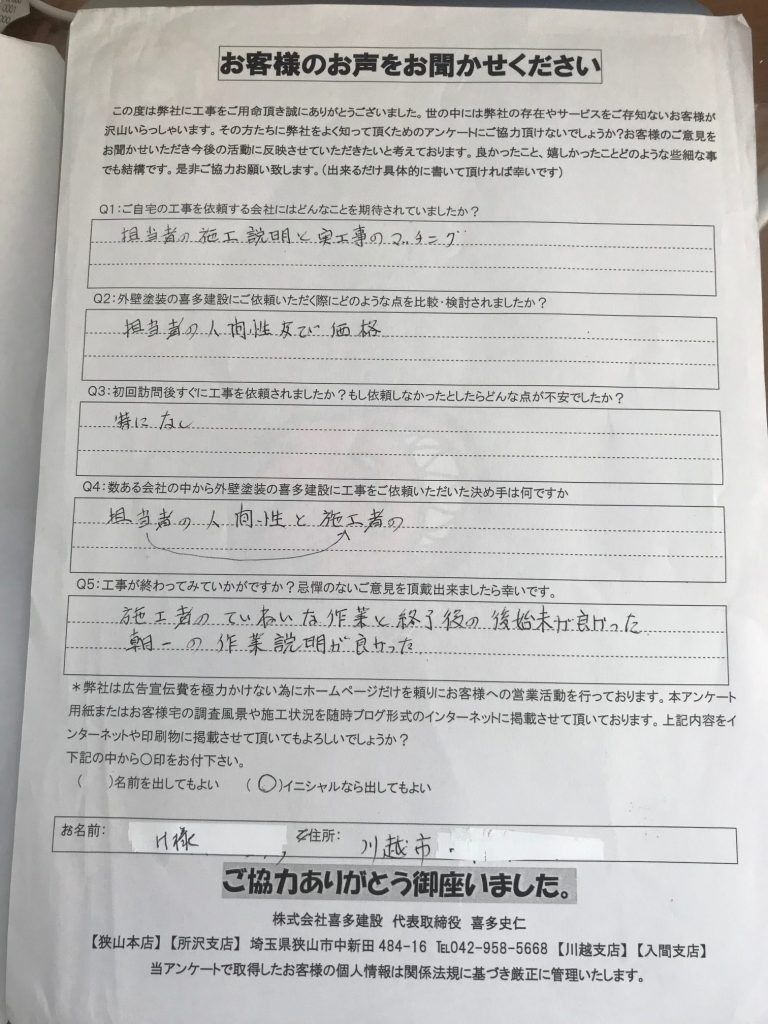 お客様のお声をお聞かせください
この度は弊社に工事をご用命頂き誠にありがとうございました。世の中には弊社の存在やサービスをご存知ないお客様が
沢山いらっしゃいます。その方たちに弊社をよく知って頂くためのアンケートにご協力頂けないでしょうか?お客様のご意見を
お聞かせいただき今後の活動に反映させていただきたいと考えております。良かったこと、嬉しかったことどのような些細な事
でも結構です。是非ご協力お願い致します。(出来るだけ具体的に書いて頂ければ幸いです)
Q1:ご自宅の工事を依頼する会社にはどんなことを期待されていましたか?
担当者の施工説明と実工事のマッチング
Q2:外壁塗装の喜多建設にご依頼いただく際にどのような点を比較・検討されましたか?
担当者の人間性及び価格
Q3:初回訪問後すぐに工事を依頼されましたか?もし依頼しなかったとしたらどんな点が不安でしたか?
特になし
Q4:数ある会社の中から外壁塗装の喜多建設に工事をご依頼いただいた決め手は何ですか
担当者の人間性と施工者の
Q5:工事が終わってみていかがですか?忌憚のないご意見を頂戴出来ましたら幸いです。
施工者のていねいな作業と終了後の後始末が良かった
朝一の作業説明が良かった
*弊社は広告宣伝費を極力かけない為にホームページだけを頼りにお客様への営業活動を行っております。本アンケート
用紙またはお客様宅の調査風景や施工状況を随時ブログ形式のインターネットに掲載させて頂いております。上記内容をイ
ンターネットや印刷物に掲載させて頂いてもよろしいでしょうか?
下記の中から○印をお付下さい。
( )名前を出してもよい (○)イニシャルなら出してもよい
お名前: H様 住所: 川越市
ご協力ありがとう御座いました。
株式会社喜多建設 代表取締役 喜多史仁
【狭山本店】【所沢支店】埼玉県狭山市中新田484-16 ℡042-958-5668【川越支店】【入間支店】
当アンケートで取得したお客様の個人情報は関係法規に基づき厳正に管理いたします。